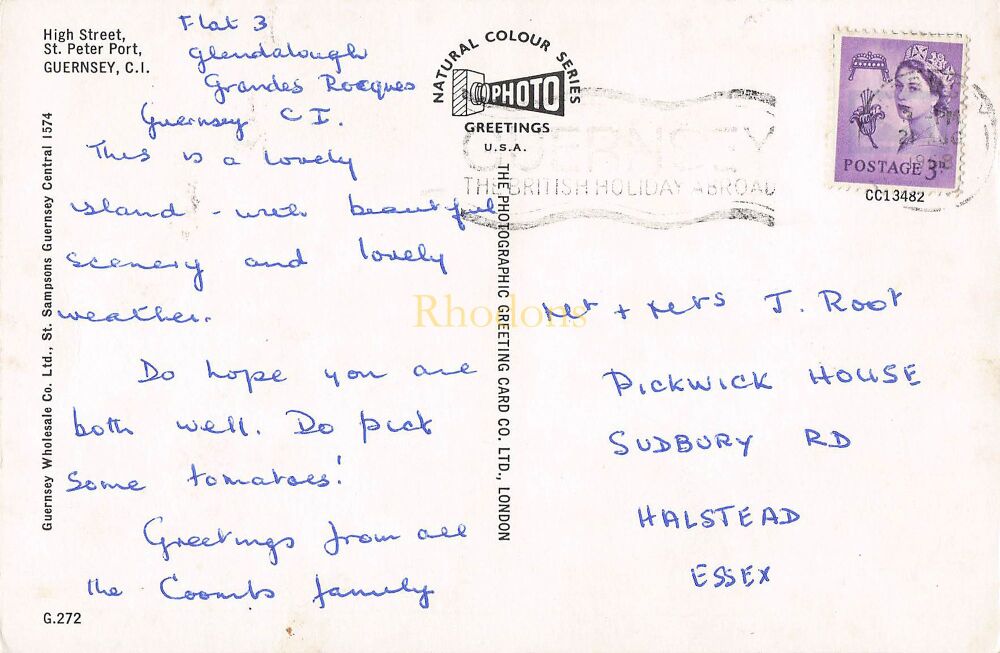 High Street,
St. Peter Port,
GUERNSEY, C.I.
Flat 3
Glendalough
Grandes Rocques
Guernsey C I.
This is a lovely
island - with beautiful
scenery and lovely
weather.
Do hope you are
both well. Do pick
some tomatoes!
Greetings from all
the Coombs family
G.272
Guernsey Wholesale Co. Ltd., St. Sampsons Guernsey Central 1574
NATURAL COLOUR SERIES
PHOTO
GREETINGS
U.S.A.
THE PHOTOGRAPHIC GREETING CARD CO. LTD., LONDON
GUERNSEY
THE BRITISH HOLIDAY ABROAD
POSTAGE 3D
CC13482
Mr + Mrs J. Root
PICKWICK HOUSE
SUDBURY RD
HALSTEAD
ESSEX
Rhodons